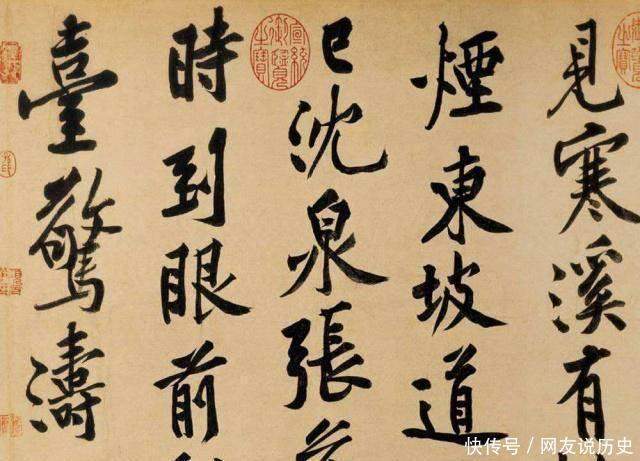 見寒溪有
煙東坡道
已沈泉張
時到眼前
臺驚濤
宣統御覽之寶
快传号／网友说历史